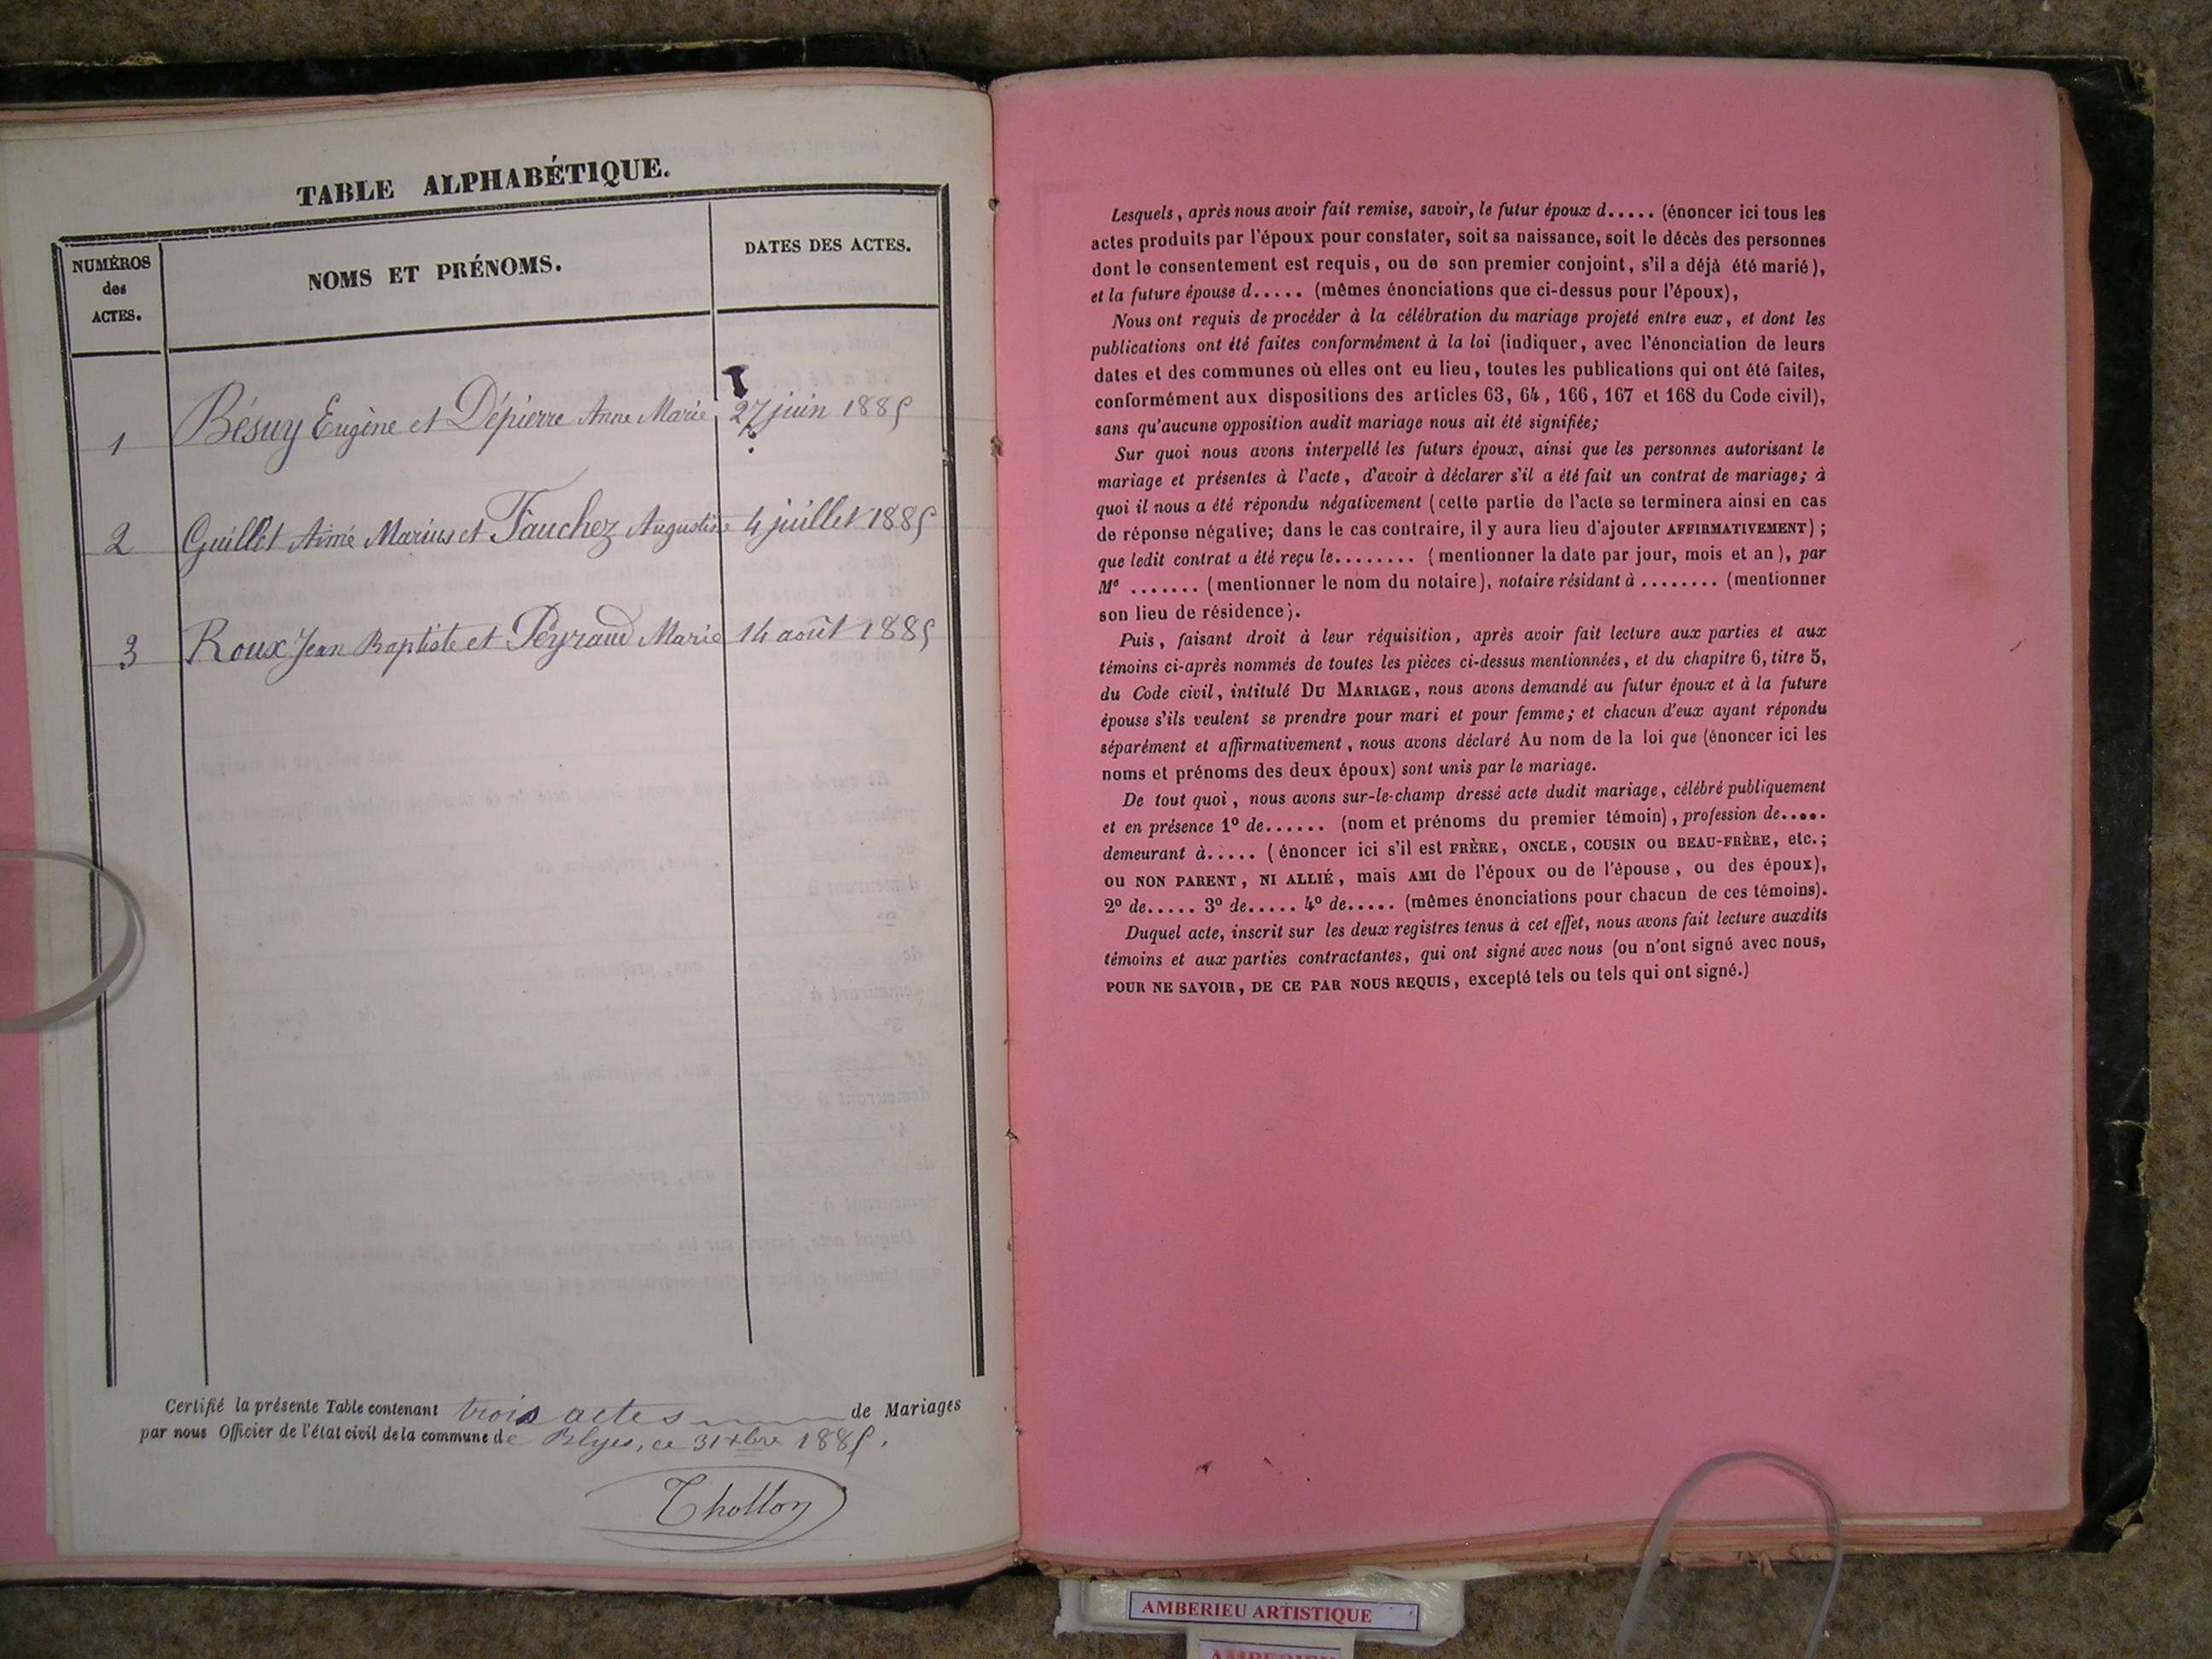 TABLE ALPHABÉTIQUE.
NUMÉROS des ACTES.
NOMS ET PRÉNOMS.
DATES DES ACTES.
1 Bésuy Eugène et Dépierre Anne Marie 27 juin 1885
2 Guillet Aimé Marius et Fauchez Augustine 4 juillet 1885
3 Roux Jean Baptiste et Peyraud Marie 14 août 1885
Certifié la présente Table contenant trois actes de Mariages
par nous Officier de l'état civil de la commune de Blyes, ce 31 Xbre 1885.
Thollon
Lesquels, après nous avoir fait remise, savoir, le futur époux d..... (énoncer ici tous les
actes produits par l'époux pour constater, soit sa naissance, soit le décès des personnes
dont le consentement est requis, ou de son premier conjoint, s'il a déjà été marié),
et la future épouse d..... (mêmes énonciations que ci-dessus pour l'époux),
Nous ont requis de procéder à la célébration du mariage projeté entre eux, et dont les
publications ont été faites conformément à la loi (indiquer, avec l'énonciation de leurs
dates et des communes où elles ont eu lieu, toutes les publications qui ont été faites,
conformément aux dispositions des articles 63, 64, 166, 167 et 168 du Code civil),
sans qu'aucune opposition audit mariage nous ait été signifiée;
Sur quoi nous avons interpellé les futurs époux, ainsi que les personnes autorisant le
mariage et présentes à l'acte, d'avoir à déclarer s'il a été fait un contrat de mariage; à
quoi il nous a été répondu négativement (cette partie de l'acte se terminera ainsi en cas
de réponse négative; dans le cas contraire, il y aura lieu d'ajouter AFFIRMATIVEMENT);
que ledit contrat a été reçu le........ (mentionner la date par jour, mois et an), par
Me ....... (mentionner le nom du notaire), notaire résidant à ........ (mentionner
son lieu de résidence).
Puis, faisant droit à leur réquisition, après avoir fait lecture aux parties et aux
témoins ci-après nommés de toutes les pièces ci-dessus mentionnées, et du chapitre 6, titre 5,
du Code civil, intitulé DU MARIAGE, nous avons demandé au futur époux et à la future
épouse s'ils veulent se prendre pour mari et pour femme; et chacun d'eux ayant répondu
séparément et affirmativement, nous avons déclaré Au nom de la loi que (énoncer ici les
noms et prénoms des deux époux) sont unis par le mariage.
De tout quoi, nous avons sur-le-champ dressé acte dudit mariage, célébré publiquement
et en présence 1º de...... (nom et prénoms du premier témoin), profession de.....
demeurant à..... (énoncer ici s'il est FRÈRE, ONCLE, COUSIN ou BEAU-FRÈRE, etc.;
ou NON PARENT, NI ALLIÉ, mais AMI de l'époux ou de l'épouse, ou des époux),
2º de..... 3º de..... 4º de..... (mêmes énonciations pour chacun de ces témoins).
Duquel acte, inscrit sur les deux registres tenus à cet effet, nous avons fait lecture auxdits
témoins et aux parties contractantes, qui ont signé avec nous (ou n'ont signé avec nous,
POUR NE SAVOIR, DE CE PAR NOUS REQUIS, excepté tels ou tels qui ont signé.)
AMBERIEU ARTISTIQUE
AMBERIEU